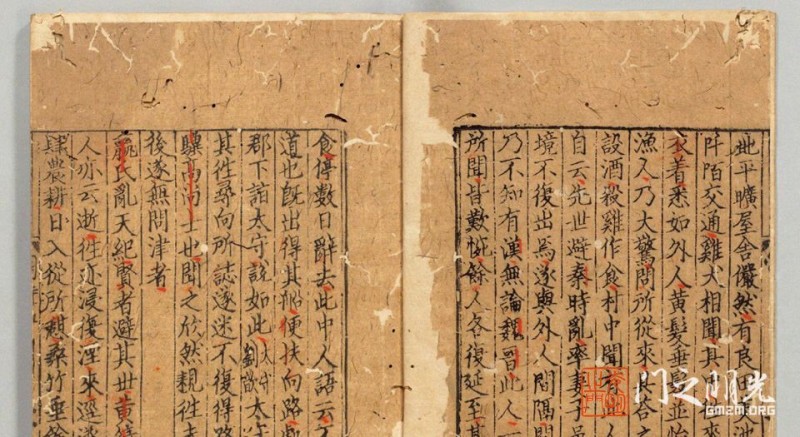 地平曠屋舍儼然有良田
阡陌交通雞犬相聞其
衣着悉如外人黃髮垂髫並怡
漁人乃大驚問所從來具答之
設酒殺雞作食村中聞有此人
自云先世避秦時亂率妻子邑
境不復出焉遂與外人間隔問
乃不知有漢無論魏晉此人一
所聞皆歎惋餘人各復延至其
食停數日辭去此中人語云不
道也既出得其船便扶向路
郡下詣太守說如此太守劉歆太守
其往尋向所誌遂迷不復得路
驥高尚士也聞之欣然親往未
後遂無問津者
嬴氏亂天紀賢者避其世黃綺
人亦云逝往迹浸復湮來逕遂
肆農耕日入從所憩桑竹垂餘
光明之门
GMZM.ORG